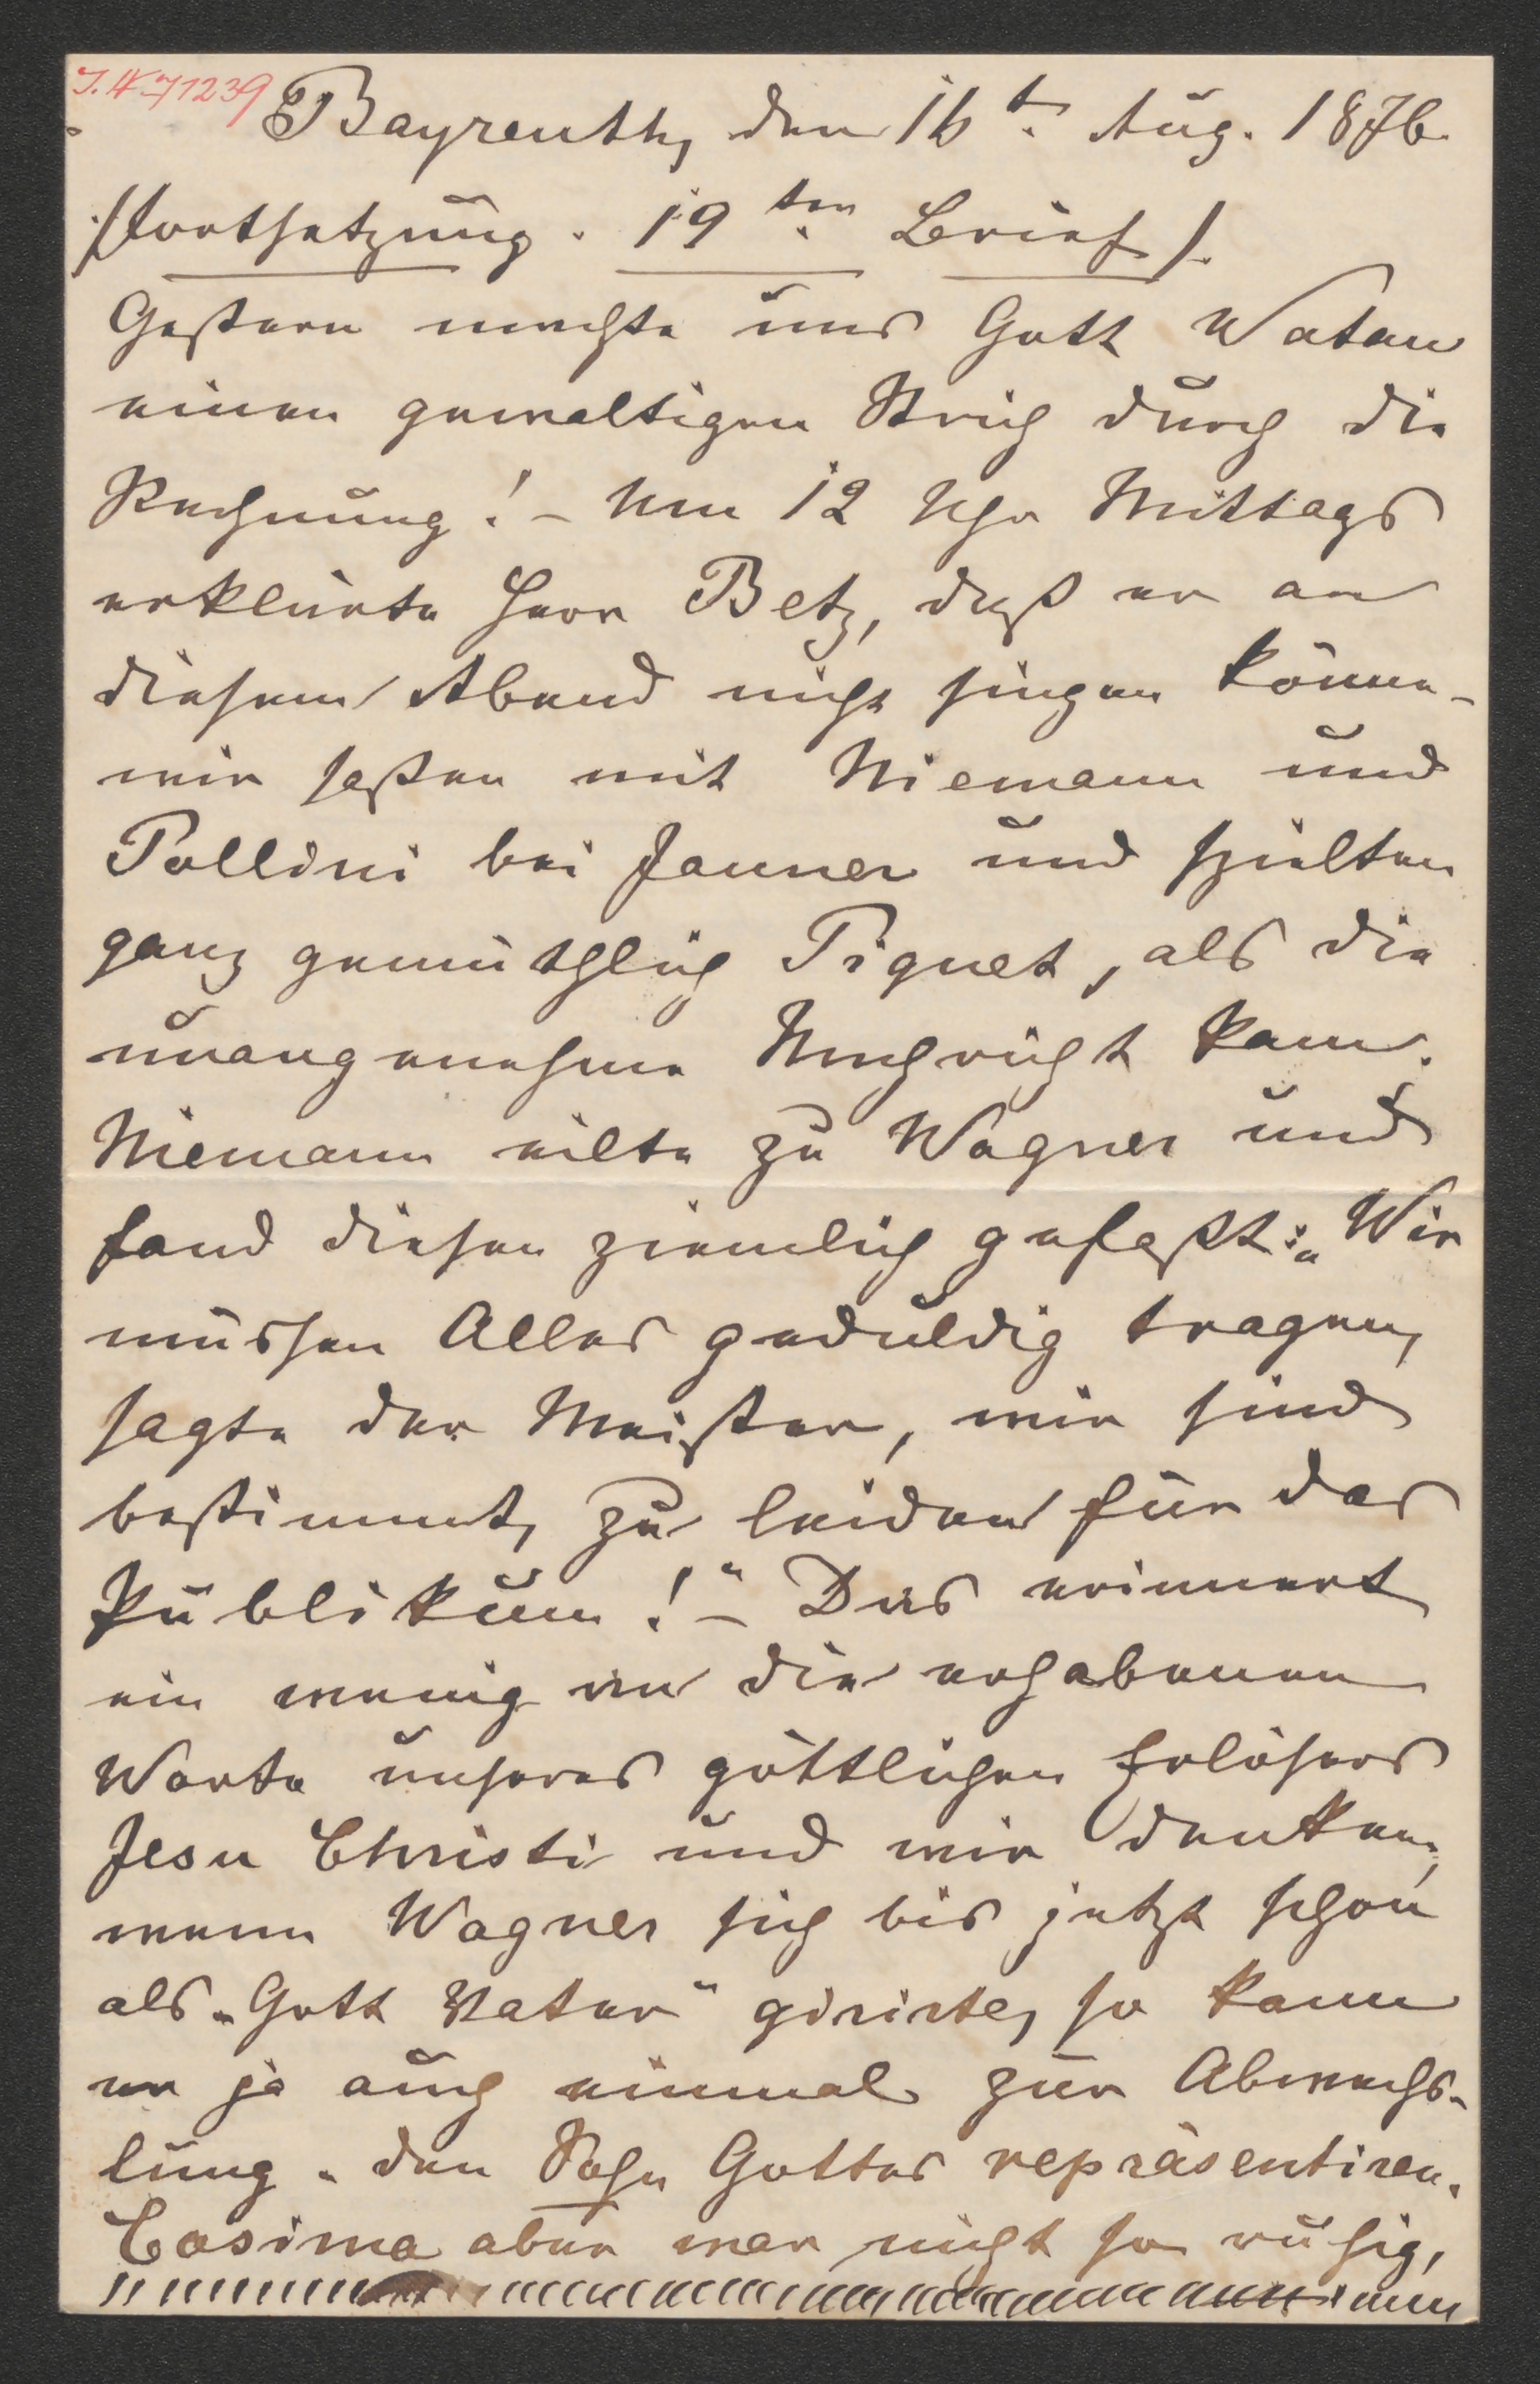 I.N. 71239
Bayreuth, den 16t. Aug. 1876.
/Fortsetzung. 19ten Brief/.
Gestern machte uns Gott Wotan
einen gewaltigen Strich durch die
Rechnung! – Um 12 Uhr Mittags
erklärte Herr Betz, daß er an
diesem Abend nicht singen könne –
wir saßen mit Niemann und
Pollini bei Jauner und spielten
ganz gemüthlich Piquet, als die
unangenehme Nachricht kam.
Niemann eilte zu Wagner und
fand diesen ziemlich gefaßt: „Wir
müssen Alles geduldig tragen,
sagte der Meister, wir sind
bestimmt, zu leiden für das
Publikum!“ – Das erinnert
ein wenig an die erhabenen
Worte unseres göttlichen Erlösers
Jesu Christi und wir denken,
wenn Wagner sich bis jetzt schon
als „Gott Vater“ gerirte, so kann
er ja auch einmal zur Abwechs-
lung den Sohn Gottes repräsentiren.
Cosima aber war nicht so ruhig,